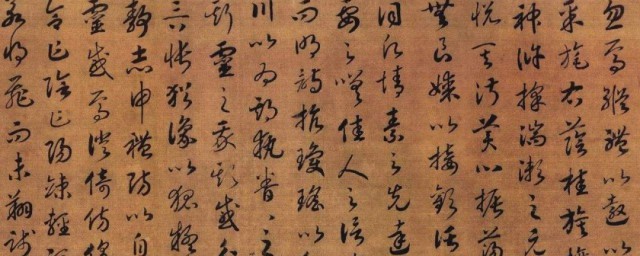 忽焉縱體以遨以
采旄右蔭桂旗攘
神滸採湍瀨之玄
悅其淑美心振蕩
無良媒以接歡託
情素之先達
要之嗟佳人之信
而明詩抗瓊以
川以為期執眷眷之
斯靈之我欺感
言悵猶豫以狐疑
靜志申禮防以自
靈感焉徙倚彷徨
合乍陰乍陽竦輕
若將飛而未翔踐